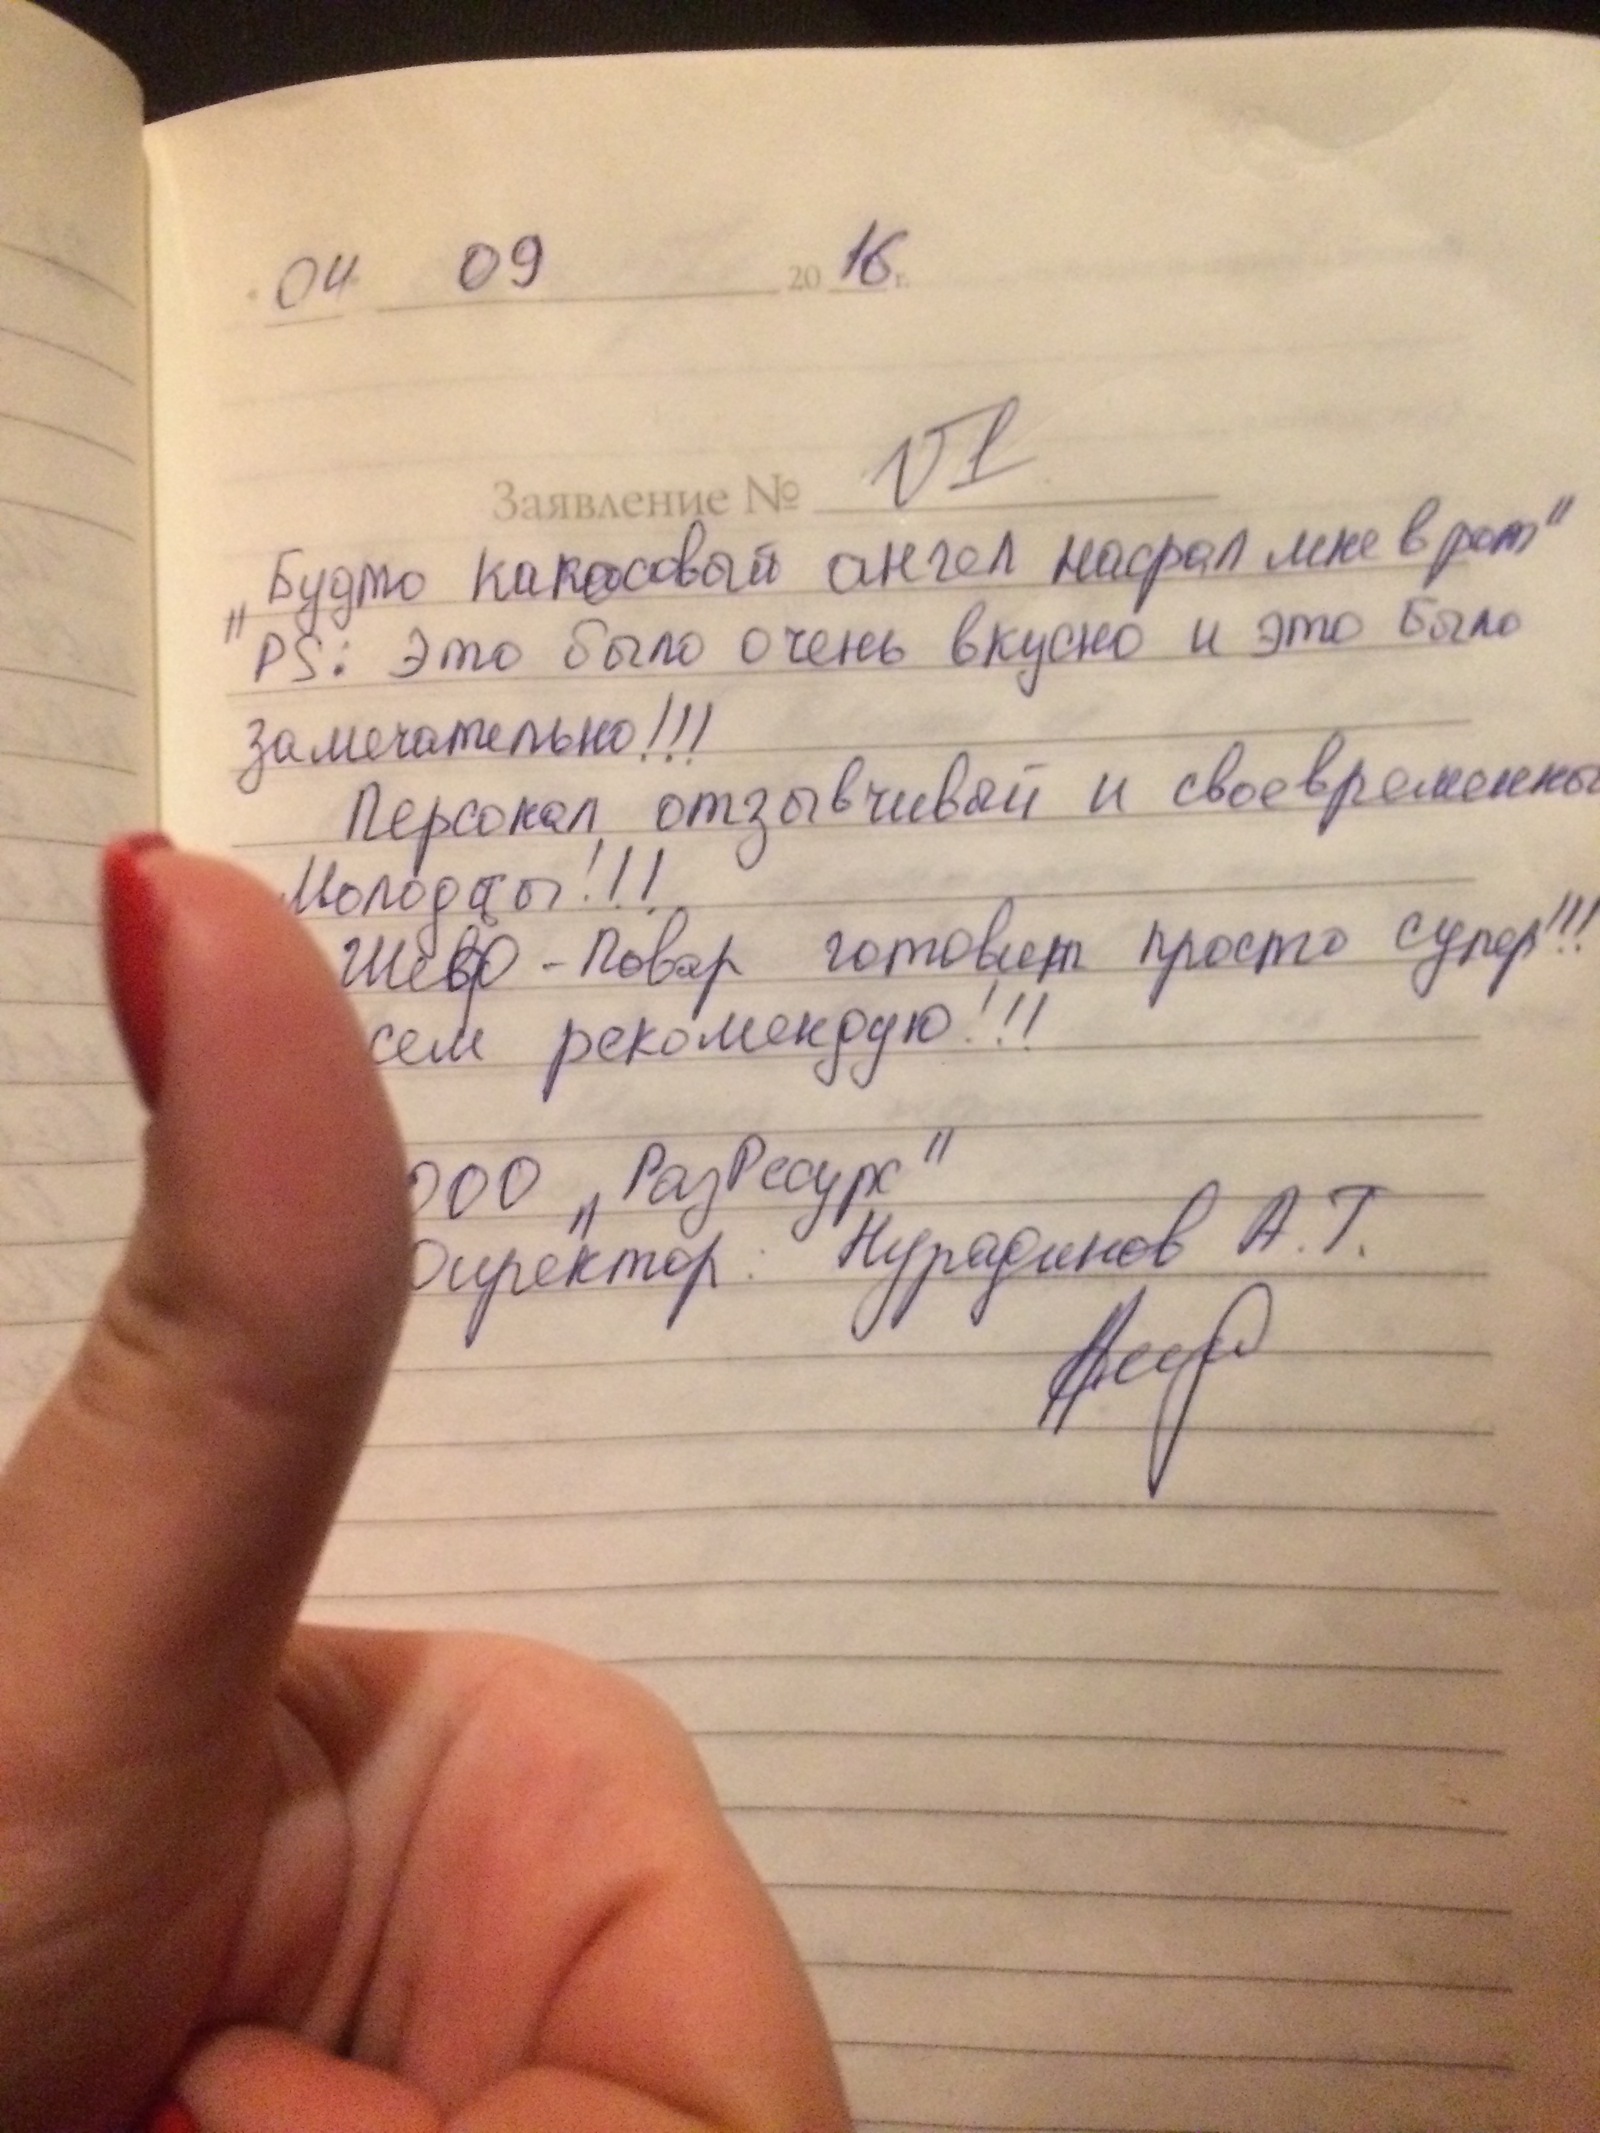 04 09 2016 г.
Заявление № VI
„Будто какосовый ангел насрал мне в рот"
"PS: Это было очень вкусно и это было
замечательно!!!
Персонал отзывчивый и своевременны
Молодцы!!!
Шеф-Повар готовит просто супер!!!
сем рекомендую!!!
ООО „РазРесурс"
Директор: Нурадинов А.Т.